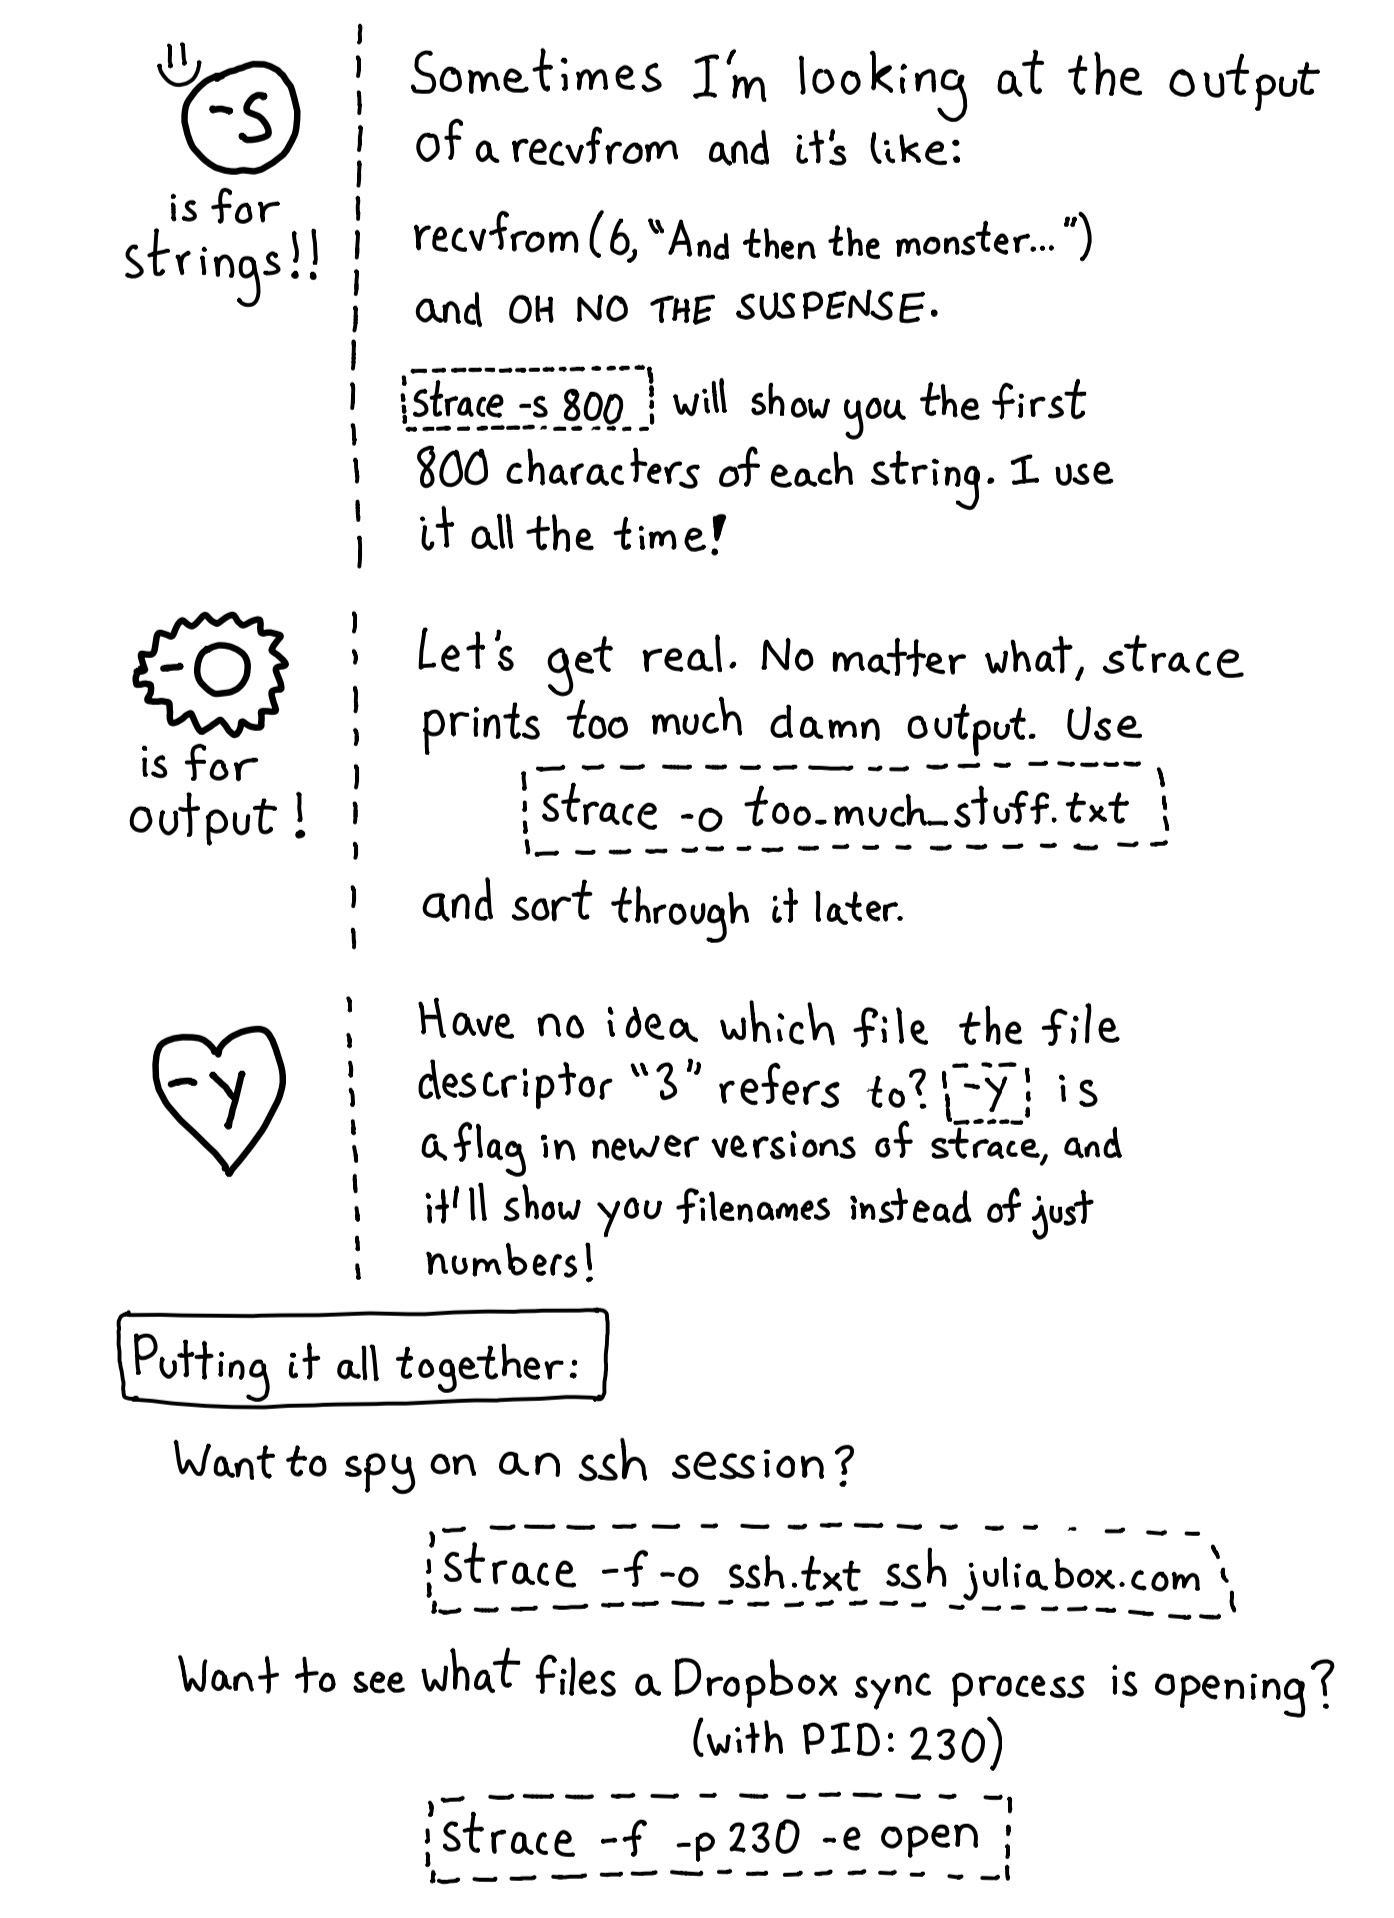 -s
is for
strings!!
Sometimes I'm looking at the output
of a recvfrom and it's like:
recvfrom(6, "And then the monster..." )
and OH NO THE SUSPENSE.
strace -s 800 will show you the first
800 characters of each string. I use
it all the time!
-o
is for
output!
Let's get real. No matter what, strace
prints too much damn output. Use
strace -o too_much_stuff.txt
and sort through it later.
-y
Have no idea which file the file
descriptor "3" refers to? -y is
a flag in newer versions of strace, and
it'll show you filenames instead of just
numbers!
Putting it all together:
Want to spy on an ssh session?
strace -f -o ssh.txt ssh juliabox.com
Want to see what files a Dropbox sync process is opening?
(with PID: 230)
strace -f -p 230 -e open